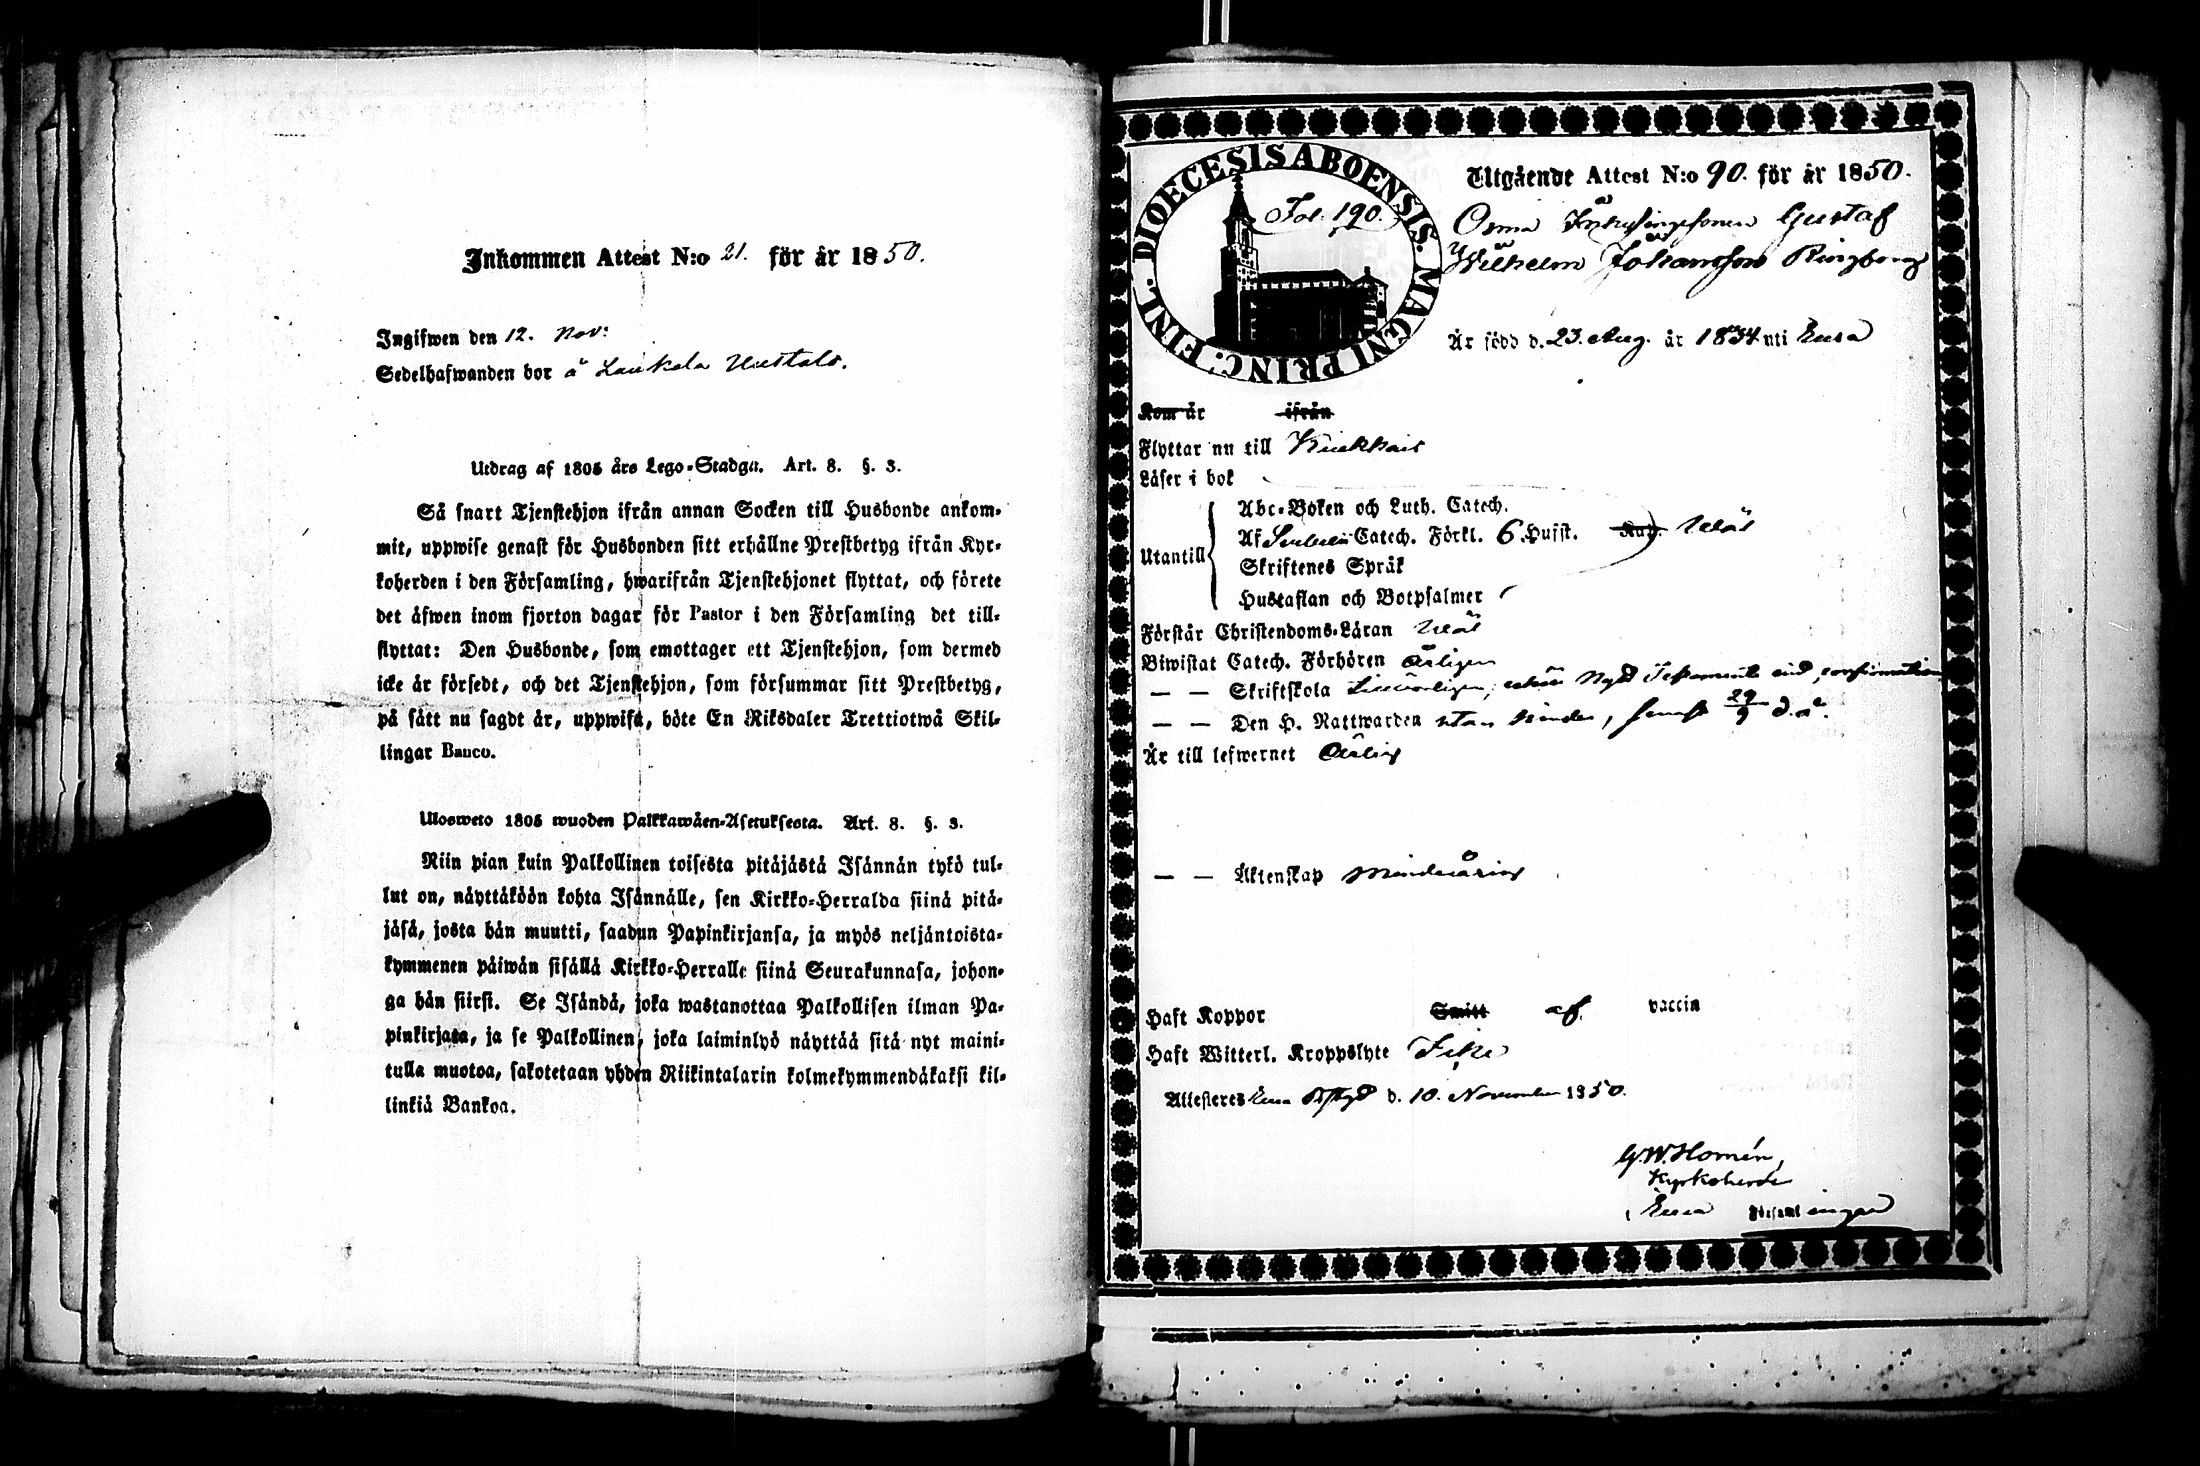 Inkommen Attest N:o 21. för år 1850.
Ingifwen den 12. Nov:
Sedelhafwanden bor å Laukola
Utdrag af 1805 års Lego-Stadga. Art. 8. §. 3.
Så snart Tjenstehjon ifrån annan Socken till Husbonde ankom-
mit, uppwise genast för Husbonden sitt erhållne Prestbetyg ifrån Kyr-
koherden i den Församling, hwarifrån Tjenstehjonet flyttat, och förete
det äfwen inom fjorton dagar för Pastor i den Församling det till-
flyttat: Den Husbonde, som emottager ett Tjenstehjon, som dermed
icke är försedt, och det Tjenstehjon, som försummar sitt Prestbetyg,
på sätt nu sagdt är, uppwisa, böte En Riksdaler Trettiotwå Skil-
lingar Banco.
Ulosweto 1805 wuoden Palkkawäen-Asetuksesta. Art. 8. §. 3.
Niin pian kuin Palkollinen toisesta pitäjästä Isännän tykö tul-
lut on, näyttäköön kohta Isännälle, sen Kirkko-Herralda siinä pitä-
jäsä, josta hän muutti, saadun Papinkirjansa, ja myös neljäntoista-
kymmenen päiwän sisällä Kirkko-Herralle siinä Seurakunnasa, johon-
ga hän siirst. Se Isändä, joka wastanottaa Palkollisen ilman Pa-
pinkirjata, ja se Palkollinen, joka laiminlyö näyttää sitä nyt maini-
tulla muotoa, sakotetaan yhden Riikintalarin kolmekymmendäkaksi kil-
linkiä Bankoa.
DIOECESIS ABOENSIS. MAGNI PRINC: FINL.
Fol. 190.
Utgående Attest N:o 90. för år 1850.
Gustaf
Wilhelm Johansson Ringbom
Är född d. 23. Aug. år 1834 uti Eura
Kom år ifrån
Flyttar nu till Kiukkais
Läser i bok
Utantill
Abc-Boken och Luth. Catech.
Af Catech. Förkl. 6 Hufst. Nöj. Wäl
Skriftenes Språk
Hustaflan och Botpsalmer
Förstår Christendoms-Läran Wäl
Biwistat Catech. Förhören Årligen
— — Skriftskola Nytt Testamente vid confirmation
— — Den H. Nattwarden utan hinder, senast 29/9 d. å.
Är till lefwernet Ärlig
— — Äktenskap Minderårig
Haft Koppor Smitt af vaccin
Haft Witterl. Kroppslyte Icke
Attesteres Eura d. 10. November 1850.
G. W. Homén,
Kyrkoherde
i Eura Församlingar